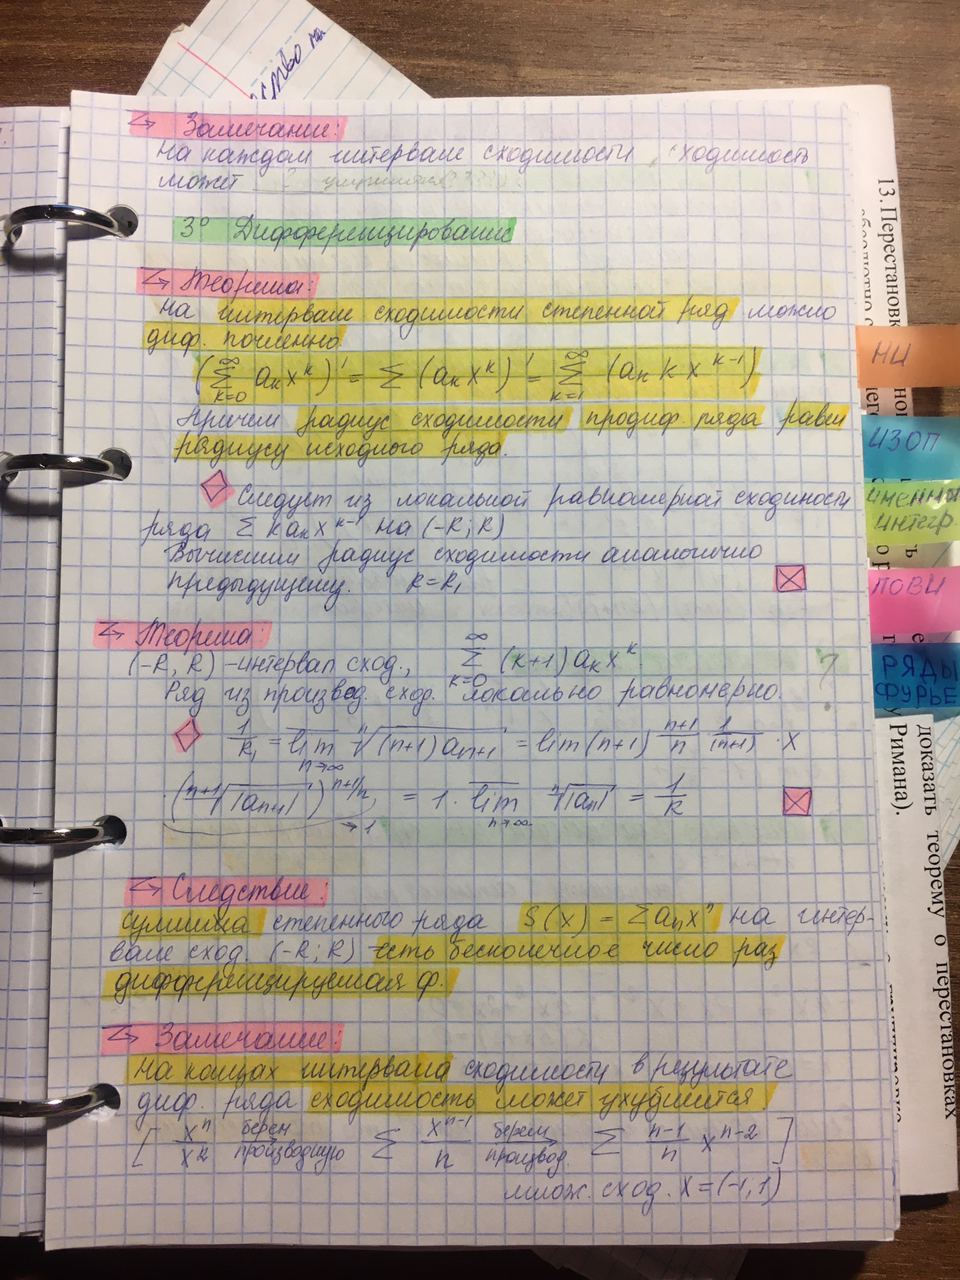 ство
↳ Замечание:
на каждом интервале сходимости сходимость
может
3° Дифференцирование
↳ Теорема:
На интервале сходимости степенной ряд можно
диф. почленно.
(∞∑k=0 aₖxᵏ)' = ∑ (aₖxᵏ)' = ∞∑k=1 (aₖ k xᵏ⁻¹)
Причем радиус сходимости продиф. ряда равен
радиусу исходного ряда.
Следует из локальной равномерной сходимости
ряда ∑ kaₖxᵏ⁻¹ на (-R; R)
Вычислим радиус сходимости аналогично
предыдущему. R = R₁
↳ Теорема:
(-R, R) - интервал сход., ∞∑k=0 (k+1) aₖxᵏ
Ряд из производ. сход. локально равномерно.
?
1/R₁ = lim n→∞ ⁿ√(n+1)aₙ₊₁ = lim (n+1) n+1/n 1/(n+1) · x
· (ⁿ⁺¹√|aₙ₊₁|)ⁿ⁺¹/ⁿ = 1 · lim n→∞ ⁿ√|aₙ| = 1/R
→1
↳ Следствие:
Сумма степенного ряда S(x) = ∑aₙxⁿ на интер-
вале сход. (-R; R) есть бесконечное число раз
дифференцируемая ф.
↳ Замечание:
На концах интервала сходимости в результате
диф. ряда сходимость может ухудшится.
[ xⁿ/x2 берем производную ∑ xⁿ⁻¹/n берем производ. ∑ n-1/n xⁿ⁻² ]
множ. сход. X = (-1, 1)
НИ
ИЗОП
интегр.
ПОВИ
РЯДЫ
ФУРЬЕ
13. Перестановк
доказать теорему о перестановках
Римана).